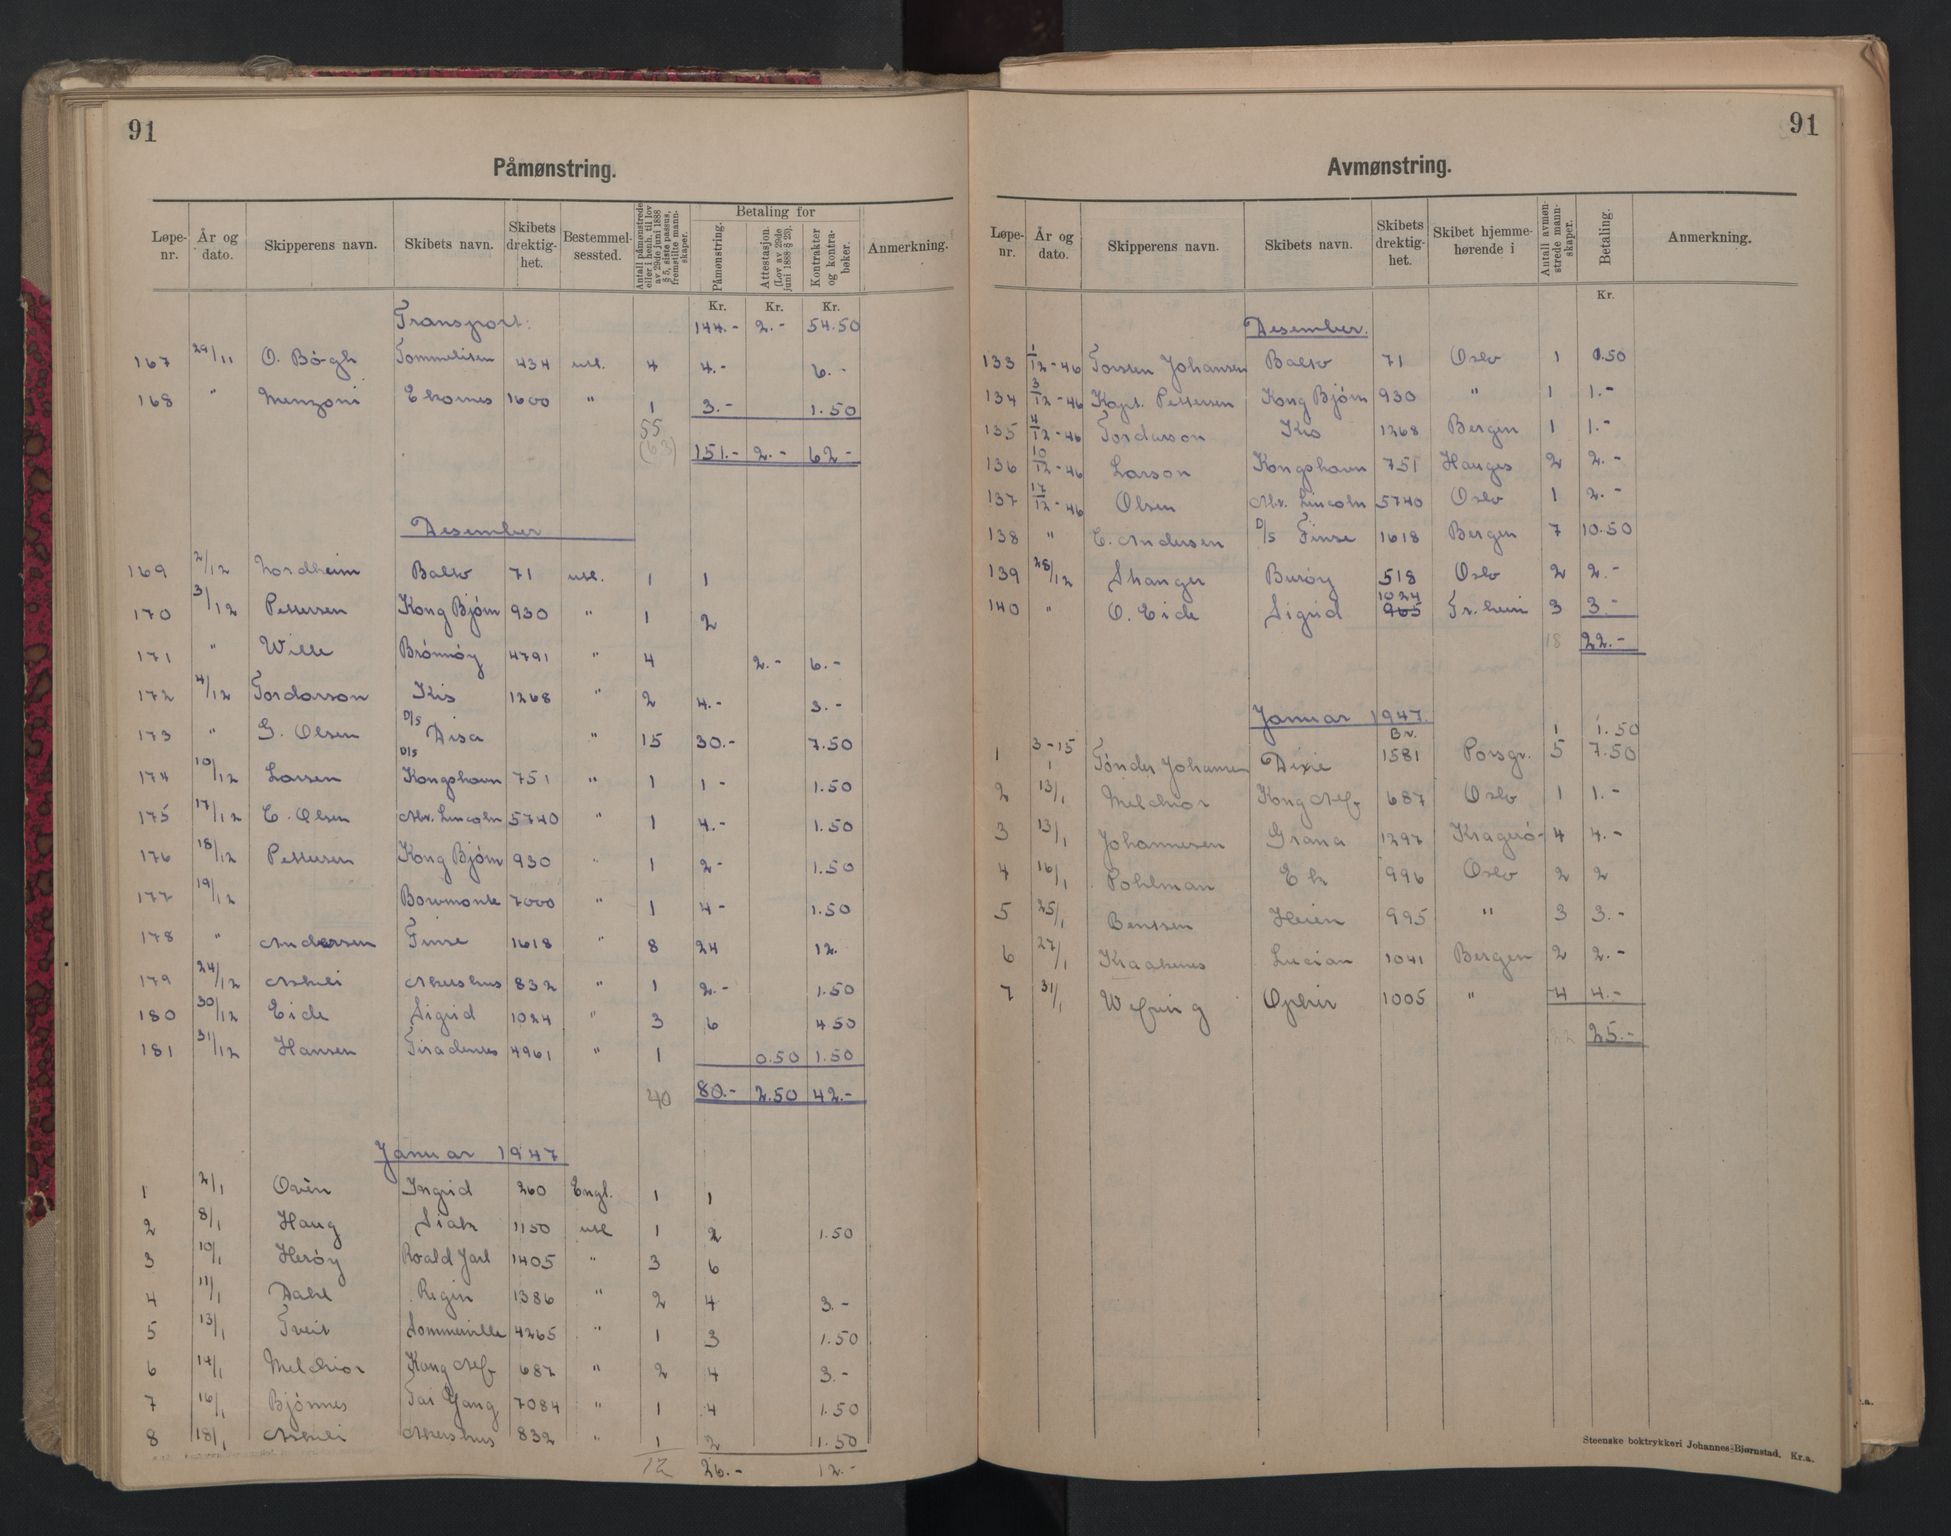 91
Påmønstring.
Løpe-nr. | År og dato. | Skipperens navn. | Skibets navn. | Skibets drektig-het. | Bestemmel-sessted. | Antall påmønstrede eller i henh. til lov av 29de juni 1888 § 5, siste passus, fremstilte mann-skaper. | Betaling for | Påmønstring. | Attestasjon. (Lov av 29de juni 1888 § 23). | Kontrakter og kontra-bøker. | Anmerkning.
Kr. Kr. Kr.
Transport: 144.- 2.- 54.50
167 29/11 O. Bøgh Tommelisen 434 utl. 4 4.- 6.-
168 " Menzoni Ekornes 1600 " 1 3.- 1.50
55
(63) 151.- 2.- 62-
Desember
169 2/12 Nordheim Balto 71 utl. 1 1
170 3/12 Pettersen Kong Bjørn 930 " 1 2
171 " Wille Brønnøy 4791 " 4 2.- 6.-
172 4/12 Tordarson Kis 1268 " 2 4.- 3.-
173 " G. Olsen D/S Disa " 15 30.- 7.50
174 10/12 Larsen D/S Kongshavn 751 " 1 1- 1.50
175 17/12 E. Olsen Abr. Lincoln 5740 " 1 4.- 1.50
176 18/12 Pettersen Kong Bjørn 930 " 1 2- 1.50
177 19/12 Bowmonte 7000 " 1 4- 1.50
178 " Andersen Finse 1618 " 8 24 12.
179 24/12 Askeli Akershus 832 " 1 2.- 1.50
180 30/12 Eide Sigrid 1024 " 3 6 4.50
181 31/12 Hansen Tiradentes 4961 " 1 0.50 1.50
40 80.- 2.50 42.-
Januar 1947
1 2/1 Ovên Ingrid 260 Engl. 1 1
2 8/1 Haug Siak 1150 utl 1 2 1.50
3 10/1 Herøy Roald Jarl 1405 " 3 6
4 11/1 Dahl Regin 1386 " 2 4 3.-
5 13/1 Tveit Sommerville 4265 " 1 3 1.50
6 14/1 Melchior Kong Alf 687 " 2 4 3.-
7 16/1 Bjønnes Tai Yang 7084 " 1 4 1.50
8 18/1 Askeli Akershus 832 " 1 2 1.50
12 26.- 12.-
91
Avmønstring.
Løpe-nr. | År og dato. | Skipperens navn. | Skibets navn. | Skibets drektig-het. | Skibet hjemme-hørende i | Antall avmøn-strede mann-skaper. | Betaling. | Anmerkning.
Kr.
Desember.
133 1/12-46 Torsten Johansen Balto 71 Oslo 1 0.50
134 3/12-46 Kapt. Pettersen Kong Bjørn 930 " 1 1.-
135 4/12-46 Tordarson Kis 1268 Bergen 1 1.-
136 10/12-46 Larson Kongshavn 751 Hauges 2 2.-
137 17/12-46 Olsen Abr. Lincoln 5740 Oslo 1 2.-
138 " E. Andersen D/S Finse 1618 Bergen 7 10.50
139 28/12 Stanger Burøy 518 Oslo 2 2.-
140 " O. Eide Sigrid 1024 965 Tr.heim 3 3.-
18 22.-
Januar 1947.
Br. 1 1.50
1 3-15/1 Tønder Johansen Dixie 1581 Porsgr. 5 7.50
2 13/1 Melchior Kong Alf 687 Oslo 1 1.-
3 13/1 Johannesen Grana 1297 Kragerø 4 4.-
4 16/1 Pohlman Ek 996 Oslo 2 2
5 25/1 Bentsen Heien 995 " 3 3.-
6 27/1 Kraakenes Lucian 1041 Bergen 2 2.-
7 31/1 Ophir 1005 " 4 4.-
22 25.-
Steenske boktrykkeri Johannes Bjørnstad. Kr.a.